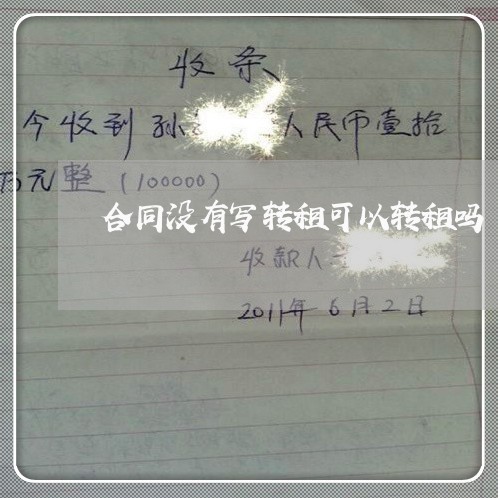 收条
今收到孙 人民币壹拾
万元整（100000）
合同没有写转租可以转租吗
收款人
2011年6月2日